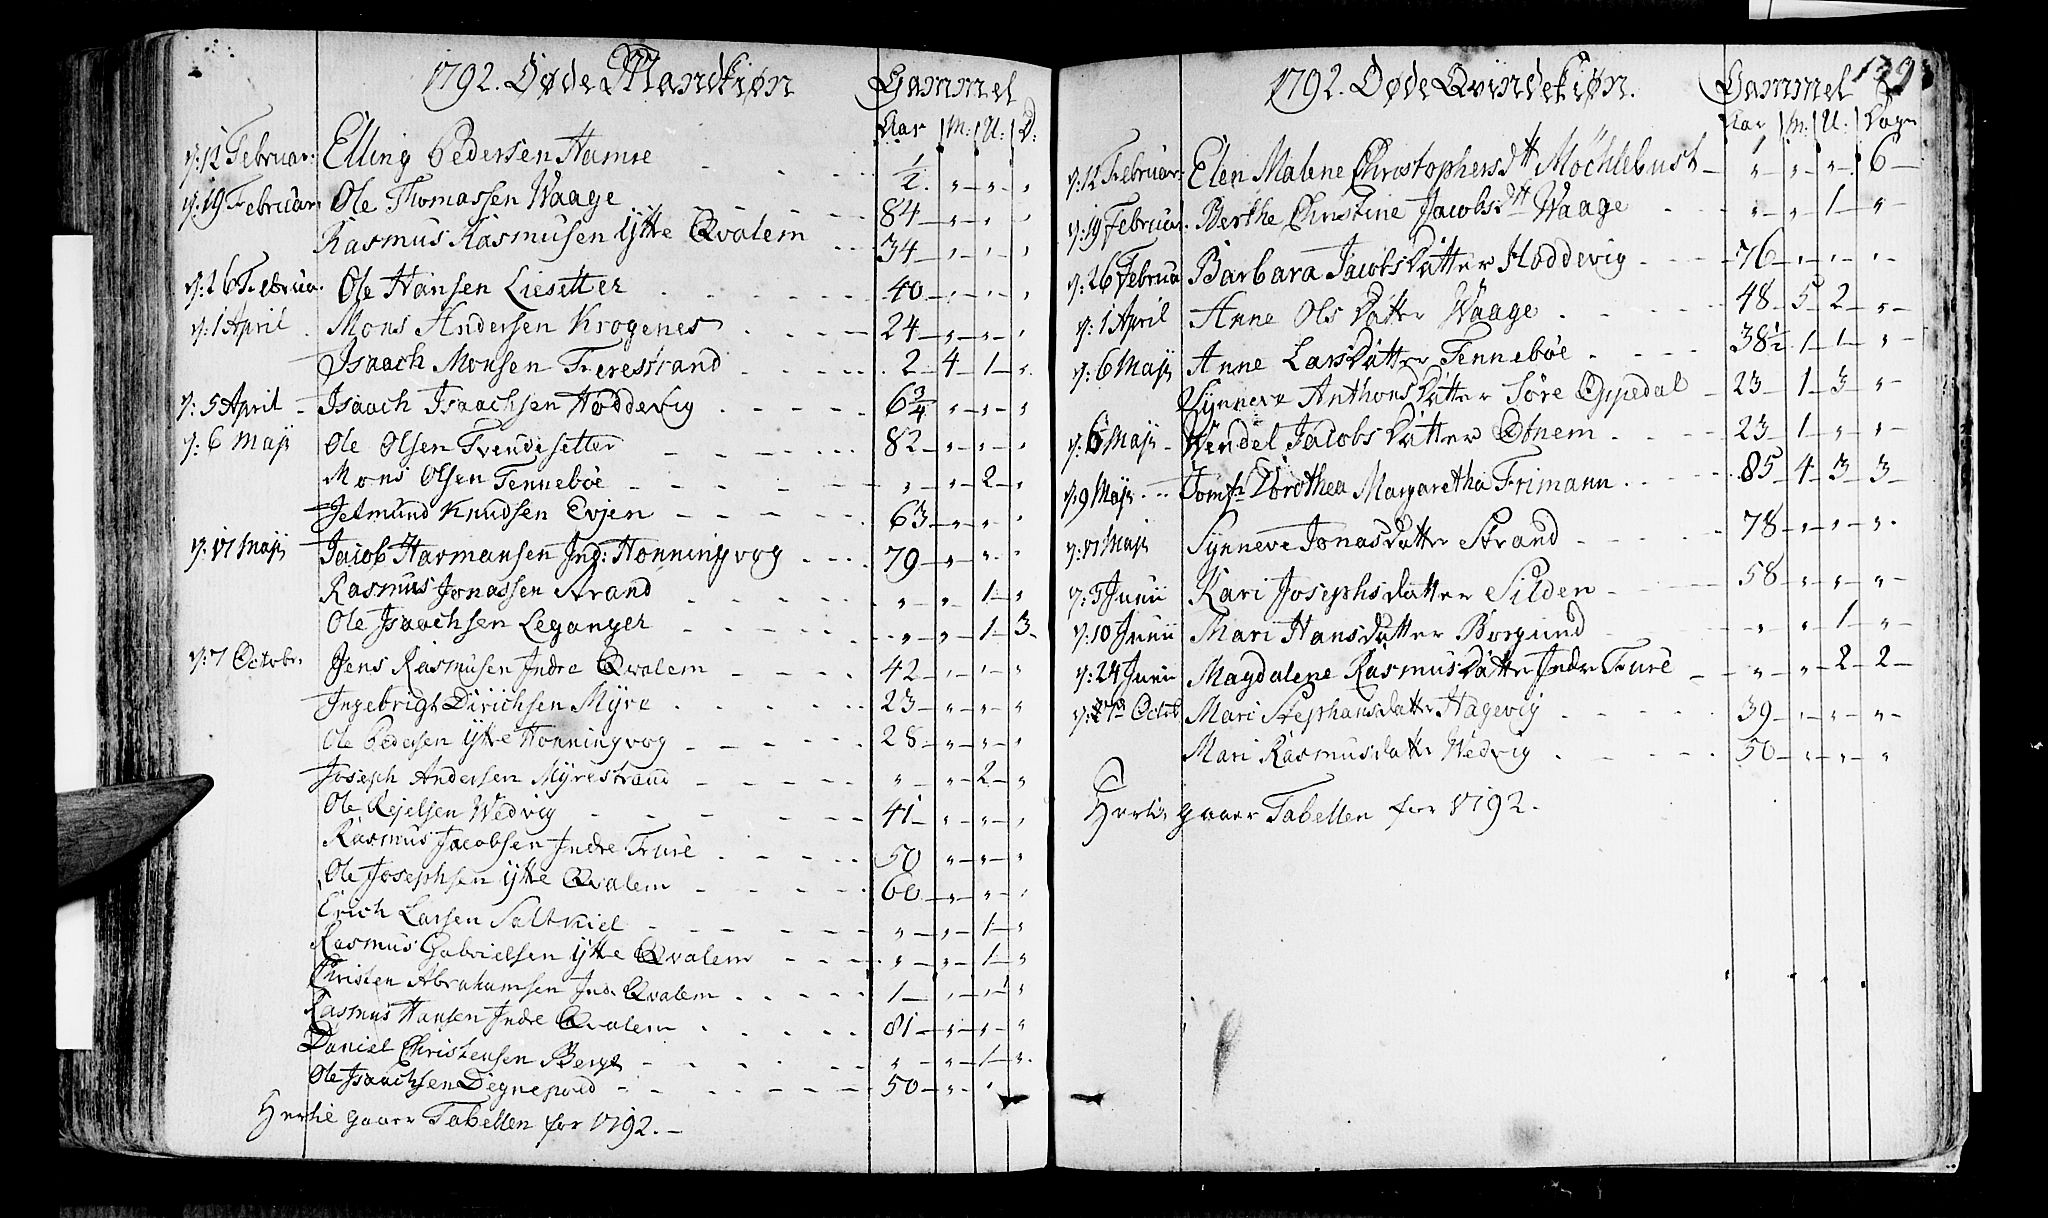 1792. Døde Mandkiøn Gammel
Aar M: U: D:
d: 12 Februar: Elling Pedersen Hamre ½ " " "
d: 19 Februar Ole Thomassen Waage 84 " " "
Rasmus Rasmusen Ytre Qvalem 34 " " "
d: 26 Februa. Ole Hansen Liesetter 40 " " "
d: 1 April Mons Andersen Krogenes 24 " " "
Isaach Monsen Fverestrand 2 4 1 "
d: 5 April Isaach Isaachsen Hoddevig 6¾ " " "
d: 6 Maji Ole Olsen Trendesetter 82 " " "
Mons Olsen Tennebøe " " 2 "
Jetmund Knudsen Evjen 63 " " "
d: 17 Maji Jacob Harmansen Ind: Honningvog 79 " " "
Rasmus Jonassen Strand " " 1 "
Ole Isaachsen Leganger " " 1 3
d: 7 Octobr. Jens Rasmusen Indre Qvalem 42 " " "
Ingebrigt Dirichsen Myre 23 " " "
Ole Pedersen Ytre Honningvog 28 " " "
Joseph Andersen Myrestrand " " 2 "
Ole Rejelsen Wedvig 41 " " "
Rasmus Jacobsen Indre Fure 50 " " "
Ole Josephsen Ytre Qvalem 60 " " "
Erich Larsen Saltkiel " " 1 "
Rasmus Gabrielsen Ytre Qvalem " " 1 "
Christen Abrahamsen Ind. Qvalem 1 " " "
Rasmus Hansen Indre Qvalem 81 " " "
Daniel Christensen Berge " " 1 "
Ole Isaachsen Degnepold 50 " "
Hertil gaaer Tabellen for 1792.
1792. Døde Qvindekiøn. Gammel
Aar M: U: Dage
d: 12 Februar: Elen Malene Christophersdtt Møchlebust " " " 6
d: 19 Februar. Berthe Christine Jacobsdtt Waage " " 1 "
d: 26 Februa Barbara Jacobsdatter Hoddevig 76 " " "
d: 1 April Anne Olsdatter Waage 48 5 2 "
d: 6 Maji Anne Larsdatter Tennebøe 38½ 1 1 "
Synneve Anthonsdatter Søre Oppedal 23 1 3 "
d: 6 Maji Wendel Jacobsdatter Otnem 23 1 " "
d: 9 Maji Jomfr Dorothea Margaretha Frimann 85 4 3 3
d: 17 Maji Synneve Jonasdatter Strand 78 " " "
d: 3 Junii Kari Josephsdatter Silden 58 " " "
d: 10 Junii Mari Hansdatter Borgund " " 1 "
d: 24 Junii Magdalene Rasmusdatter Indre Fure " " 2 2
d: 7de Octob Mari Stephansdatter Hagevig 39 " " "
Mari Rasmusdatt. Wedvig 50 " " "
Hertil gaaer Tabellen for 1792.